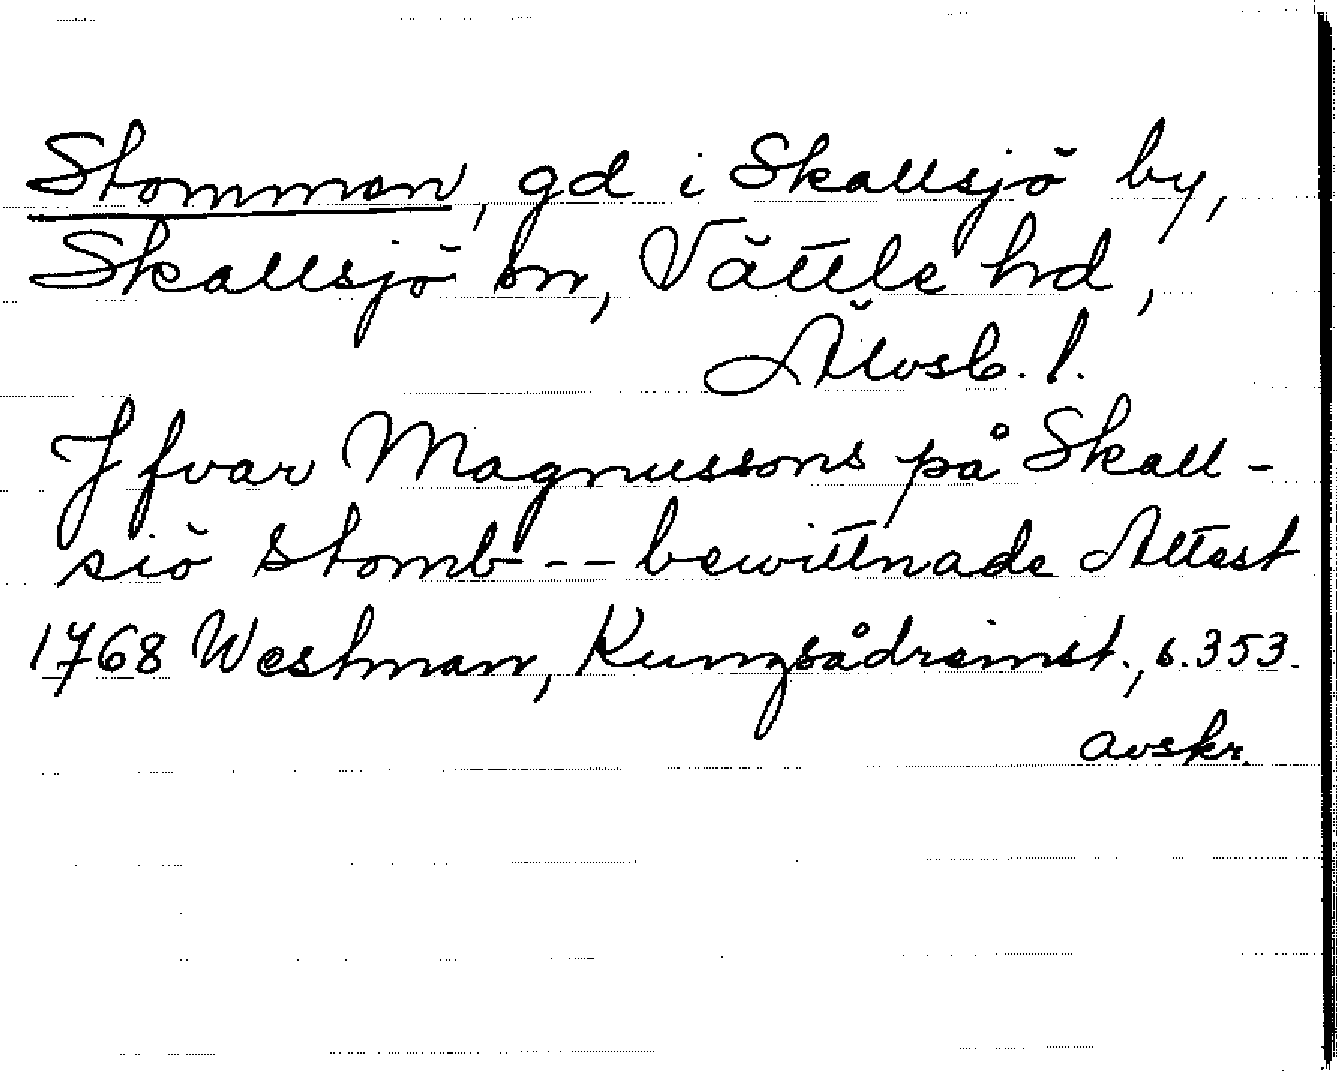 Stommen, gd i Skallsjö by,
Skallsjö sn, Vättle hd,
Älvsb. l.
Jfvar Magnussons på Skall-
siö Stomb -- bewittnade Attest
1768 Westman, Kungsådreinst., s. 353.
avskr.